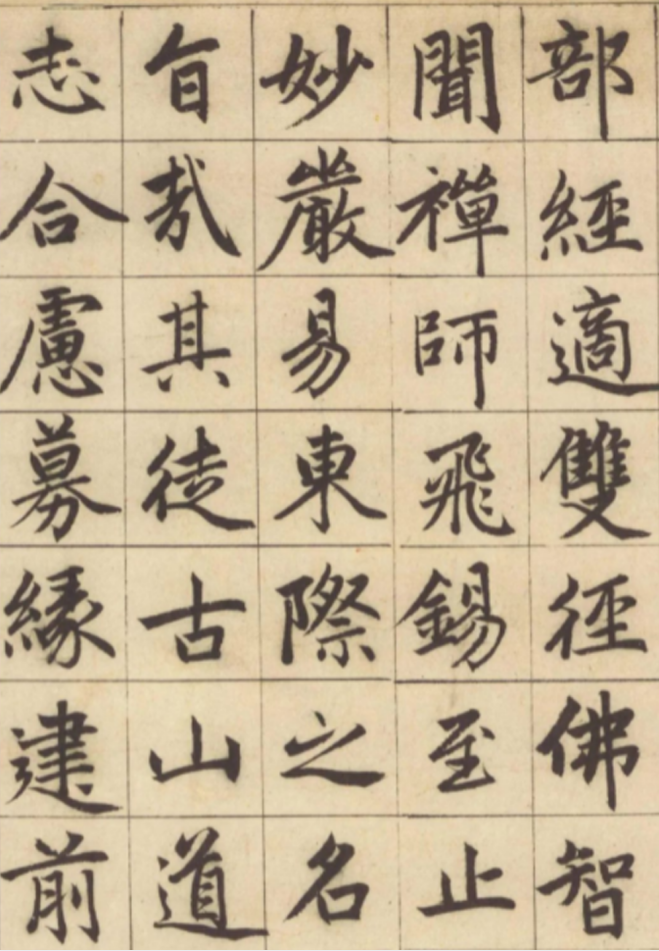 部經適雙徑佛智
聞禪師飛錫至止
妙嚴易東際之名
旨哉其徒古山道
志合慮募緣建前